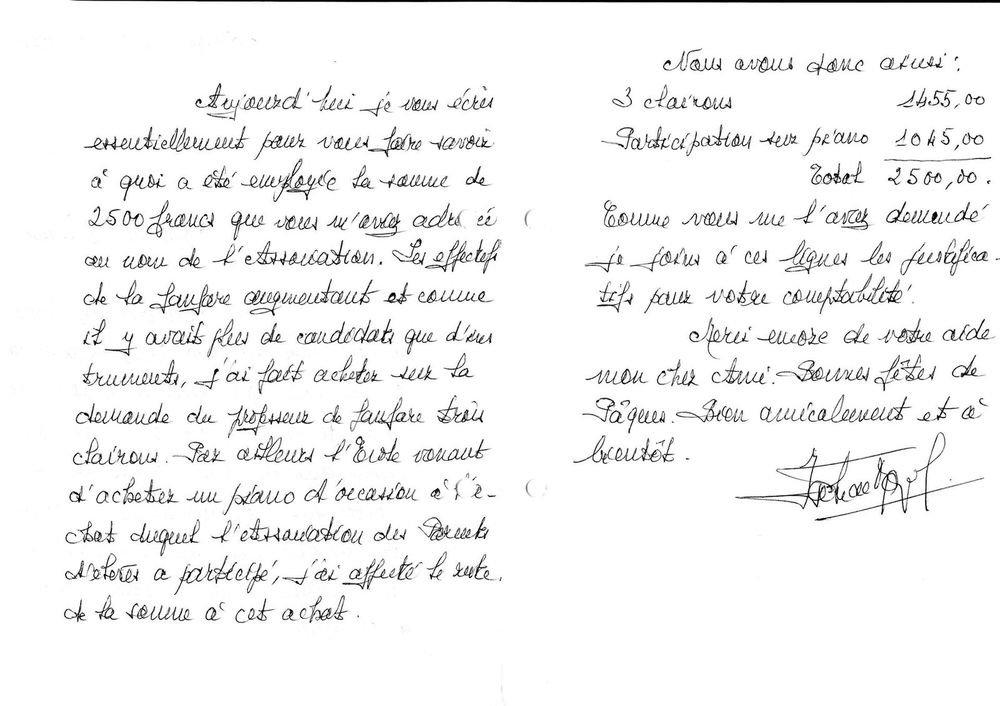 Aujourd'hui je vous écris
essentiellement pour vous faire savoir
à quoi a été employée la somme de
2500 francs que vous m'avez adressée
au nom de l'Association. Les effectifs
de la fanfare augmentant et comme
il y avait plus de candidats que d'ins
truments, j'ai fait acheter sur la
demande du professeur de fanfare trois
clairons. Par ailleurs l'Ecole venant
d'acheter un piano d'occasion à l'a-
chat duquel l'Association des Parents
d'élèves a participé, j'ai affecté le reste
de la somme à cet achat.
Nous avons donc ainsi :
3 clairons 1455,00
Participation sur piano 1045,00
Total 2500,00.
Comme vous me l'avez demandé
je joins à ces lignes les justifica-
tifs pour votre comptabilité.
Merci encore de votre aide
mon cher Ami. Bonnes fêtes de
Pâques. Bien amicalement et à
bientôt.